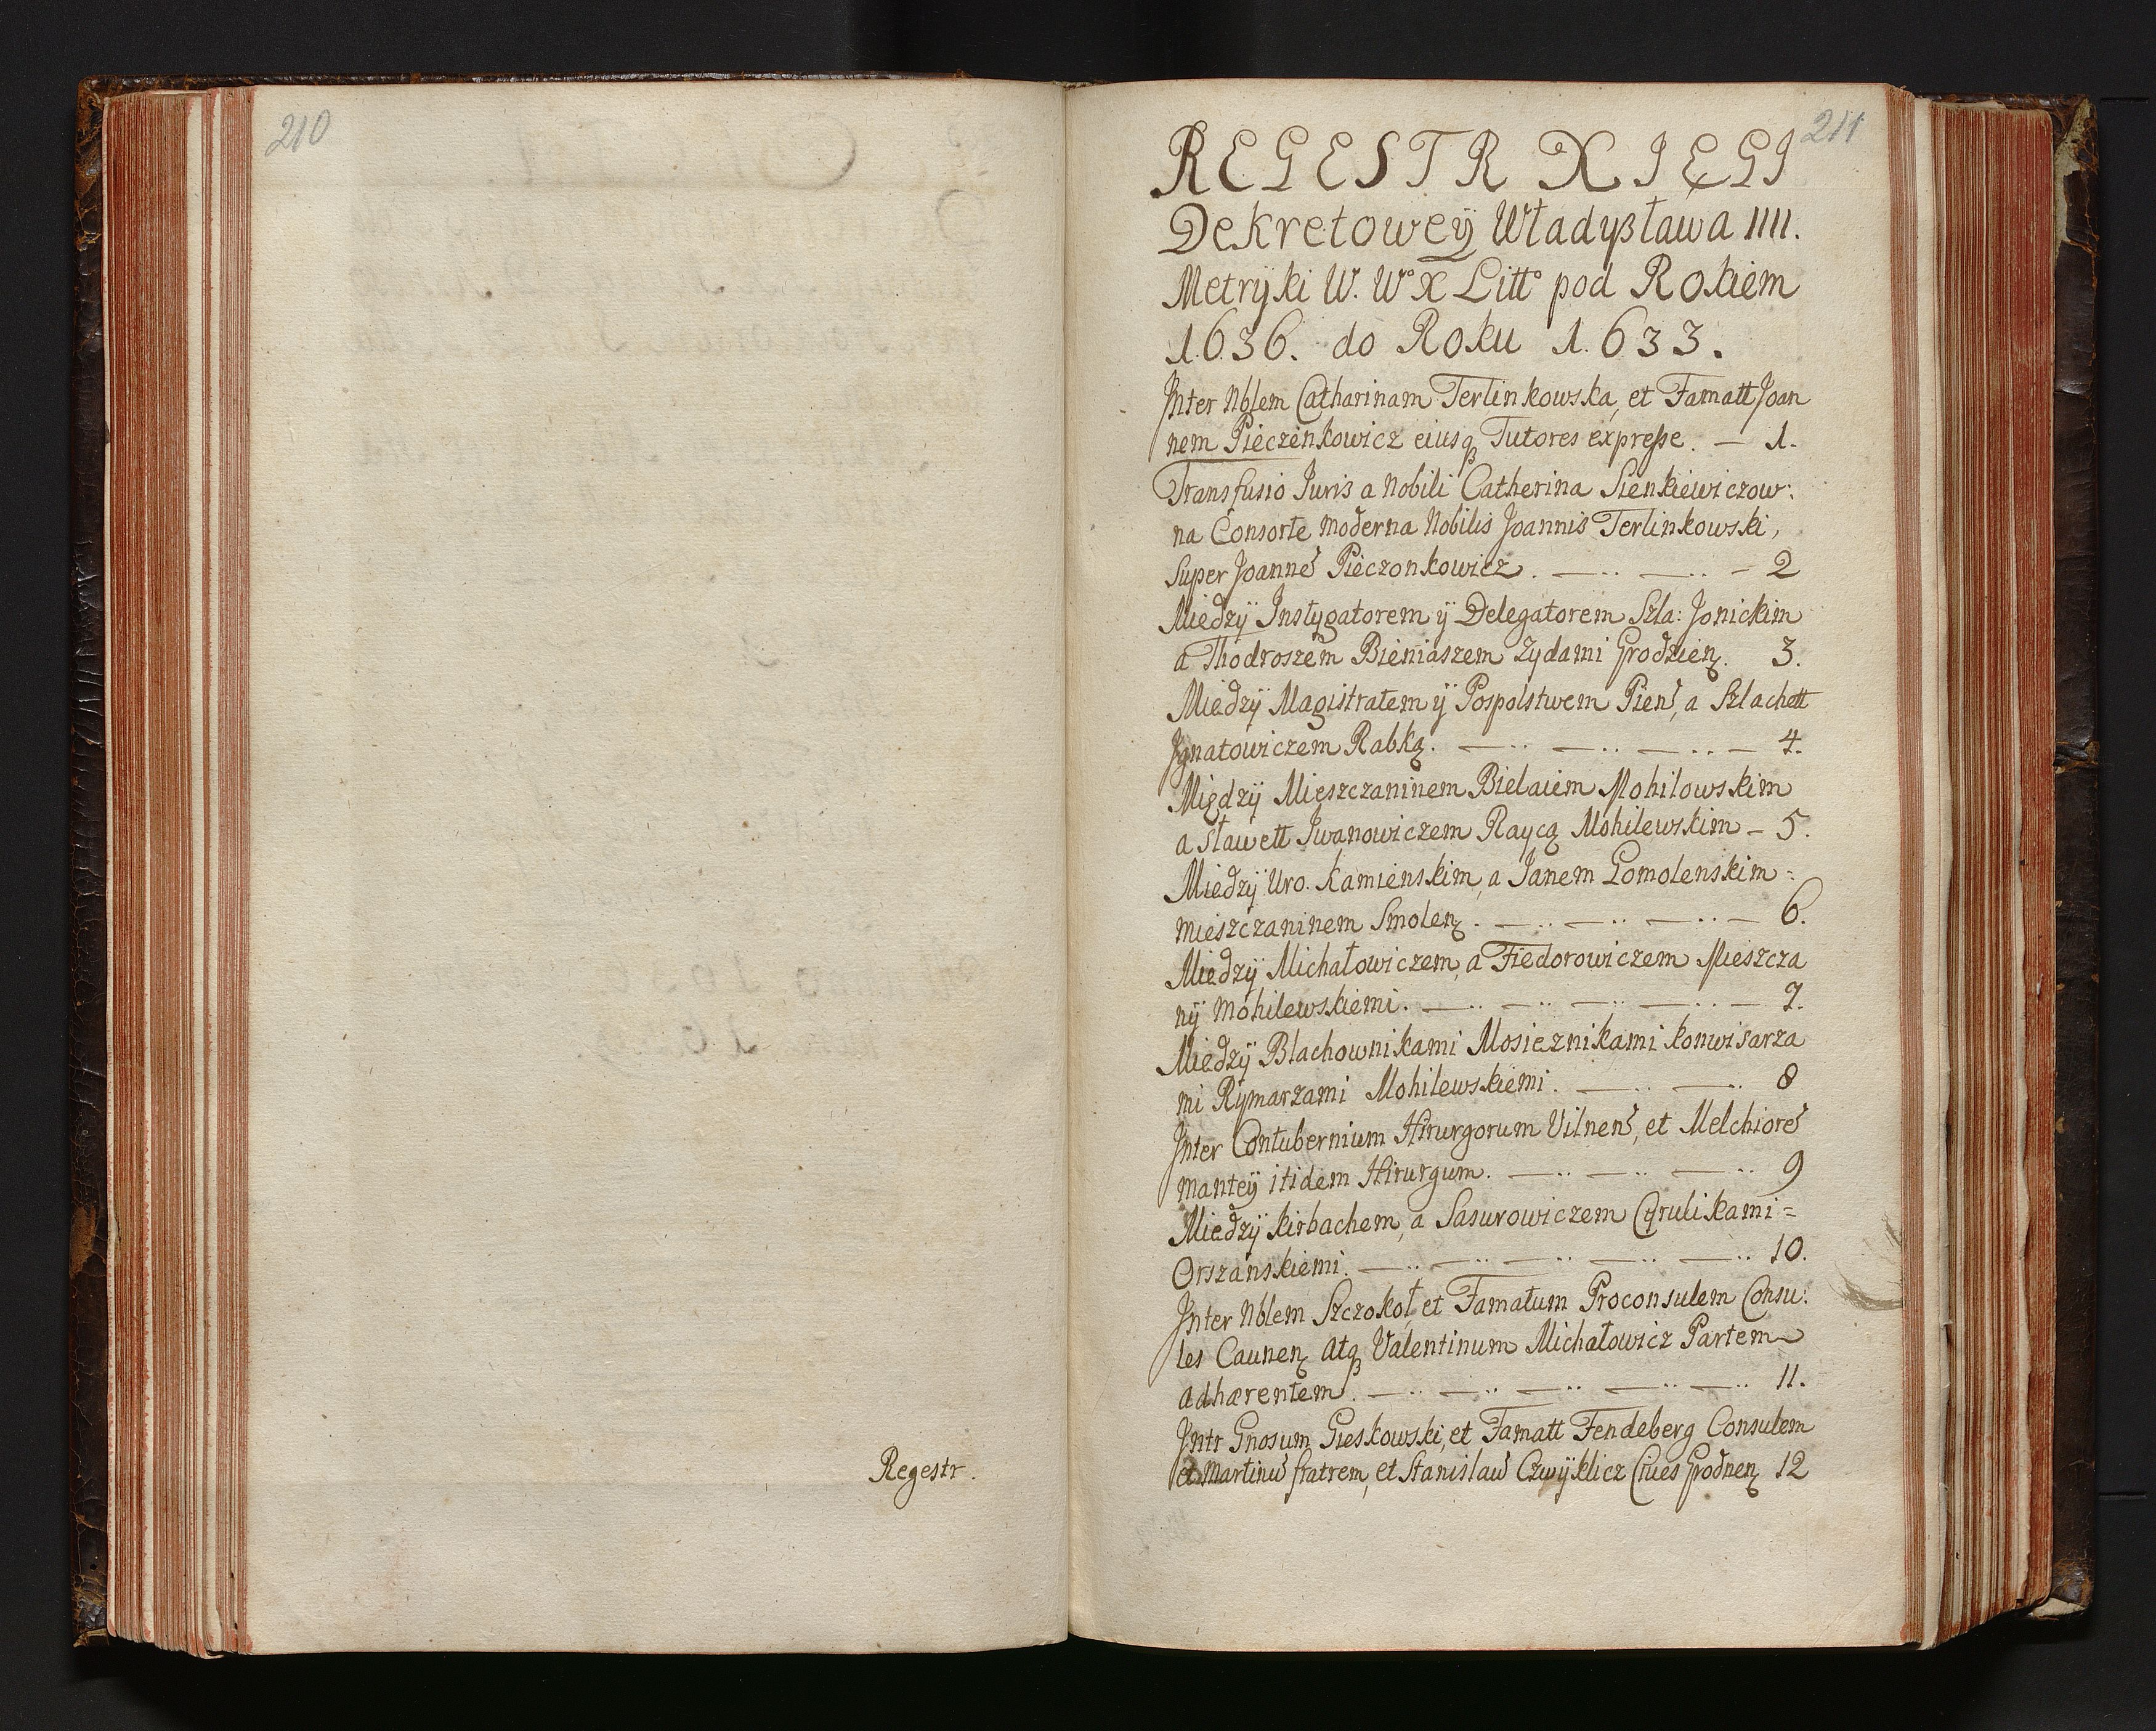 210
Regestr.
211
REGESTR XIĘGI
Dekretoweÿ Władysława IIII.
Metrÿki W. Wº X Littº pod Rokiem
1636. do Roku 1633.
Inter Nblem Catharinam Terlinkowska, et Famatt Joan
nem Pieczenkowicz eiusq Tutores expresse. — 1.
Transfusio Juris a Nobili Catherina Sienkiewiczow:
na Consorte moderna Nobilis Joannis Terlinkowski,
Super Joannē Pieczonkowicz. — 2
Miedzÿ Instygatorem ÿ Delegatorem Szla: Jonickim
a Thodroszem Bieniaszem Zydami Grodzień. 3.
Miedzÿ Magistratem ÿ Pospolstwem Pień, a Szlachett
Jgnatowiczem Rabką. — 4.
Między Mieszczaninem Bielaiem Mohilowskim
a Sławett Iwanowiczem Raycą Mohilewskim — 5.
Miedzÿ Uro. Kamienskim, a Janem Gomolenskim =
mieszczaninem Smolen. — 6.
Miedzÿ Michałowiczem, a Fiedorowiczem Mieszcza
nÿ Mohilewskiemi. — 7.
Miedzÿ Blachownikami Mosieznikami konwisarza
mi Rymarzami Mohilewskiemi. — 8
Inter Contubernium Hirurgorum Vilnen, et Melchiorē
Manteÿ itidem Hirurgum. — 9
Miedzÿ Kirbachem, a Sasurowiczem Cÿrulikami =
Orszanskiemi. — 10.
Inter Nblem Szczokot, et Famatum Proconsulem Consu:
les Caunen Atq Valentinum Michałowicz Partem
adhærentem. — 11.
Intr Gnosum Gieskowski, et Famatt Fendeberg Consulem
et Martinū fratrem, et Stanislaū Czwÿklicz Cives Grodnen 12